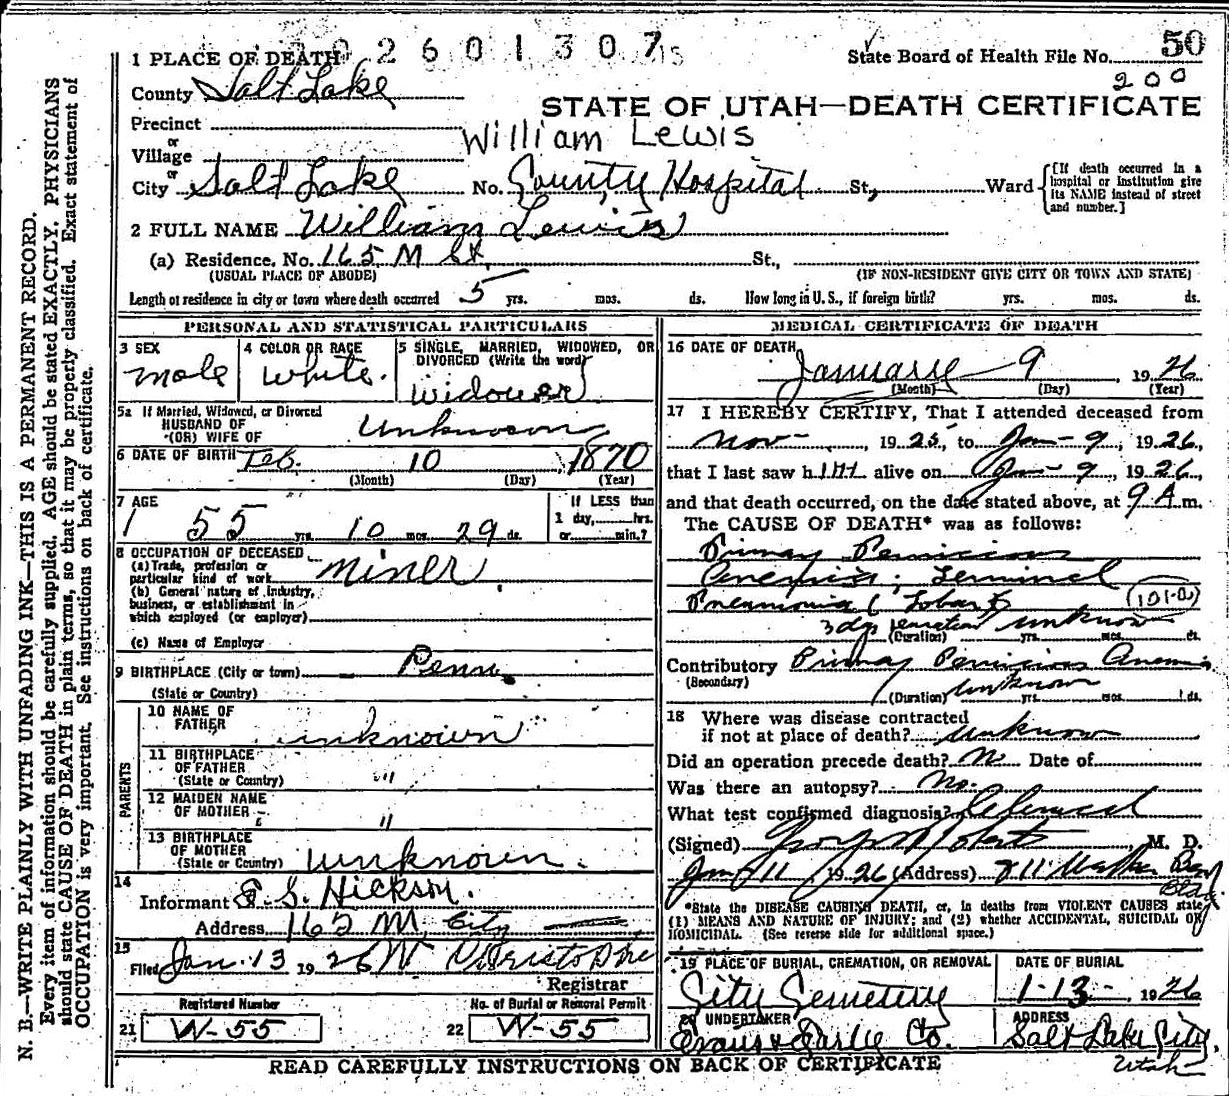 2 6 0 1 3 0 7
50
State Board of Health File No.
200
1 PLACE OF DEATH
County Salt Lake
STATE OF UTAH—DEATH CERTIFICATE
Precinct
William Lewis
or
Village
or
City Salt Lake No. County Hospital St, Ward
[If death occurred in a hospital or institution give its NAME instead of street and number.]
2 FULL NAME William Lewis
(a) Residence, No. 165 M St, St.,
(USUAL PLACE OF ABODE) (IF NON-RESIDENT GIVE CITY OR TOWN AND STATE)
Length of residence in city or town where death occurred 5 yrs. mos. ds. How long in U. S., if foreign birth? yrs. mos. ds.
PERSONAL AND STATISTICAL PARTICULARS
3 SEX
male
4 COLOR OR RACE
White.
5 SINGLE, MARRIED, WIDOWED, OR
DIVORCED (Write the word)
Widower
5a If Married, Widowed, or Divorced
HUSBAND OF
(OR) WIFE OF Unknown
6 DATE OF BIRTH Feb. 10 1870
(Month) (Day) (Year)
7 AGE
55 yrs. 10 mos. 29 ds.
If LESS than
1 day, hrs.
or min.?
8 OCCUPATION OF DECEASED
(a) Trade, profession or
particular kind of work Miner.
(b) General nature of Industry,
business, or establishment in
which employed (or employer)
(c) Name of Employer
9 BIRTHPLACE (City or town) Penn.
(State or Country)
PARENTS
10 NAME OF
FATHER unknown
11 BIRTHPLACE
OF FATHER
(State or Country) "
12 MAIDEN NAME
OF MOTHER "
13 BIRTHPLACE
OF MOTHER
(State or Country) unknown.
14
Informant E. S. Hickson.
Address 162 M, City
15
Filed Jan. 13 1926 W
Registrar
Registered Number
21 W-55
No. of Burial or Removal Permit
22 W-55
MEDICAL CERTIFICATE OF DEATH
16 DATE OF DEATH
January 9 1926
(Month) (Day) (Year)
17 I HEREBY CERTIFY, That I attended deceased from
Nov- , 1925, to Jan-9, 1926,
that I last saw him alive on Jan-9, 1926,
and that death occurred, on the date stated above, at 9 A. m.
The CAUSE OF DEATH* was as follows:
Primary Pernicious
Anemia; Terminal
Pneumonia (Lobar)
(101-a)
3 dys duration unknown
(Duration) yrs. mos. ds.
Contributory Primary Pernicious Anemia
(Secondary)
(Duration) unknown yrs. mos. ds.
18 Where was disease contracted
if not at place of death? Unknown
Did an operation precede death? No Date of
Was there an autopsy? No.
What test confirmed diagnosis? Clinical
(Signed) Roberts, M. D.
Jan 11 1926 (Address) 811 Walker Bank
Bldg
*State the DISEASE CAUSING DEATH, or, in deaths from VIOLENT CAUSES state
(1) MEANS AND NATURE OF INJURY; and (2) whether ACCIDENTAL, SUICIDAL OR
HOMICIDAL. (See reverse side for additional space.)
19 PLACE OF BURIAL, CREMATION, OR REMOVAL
City Cemetery
DATE OF BURIAL
1-13- 1926
20 UNDERTAKER
Evans & Earlie Co.
ADDRESS
Salt Lake City,
Utah
READ CAREFULLY INSTRUCTIONS ON BACK OF CERTIFICATE
N. B.—WRITE PLAINLY WITH UNFADING INK—THIS IS A PERMANENT RECORD.
Every item of information should be carefully supplied. AGE should be stated EXACTLY. PHYSICIANS
should state CAUSE OF DEATH in plain terms, so that it may be properly classified. Exact statement of
OCCUPATION is very important. See instructions on back of certificate.